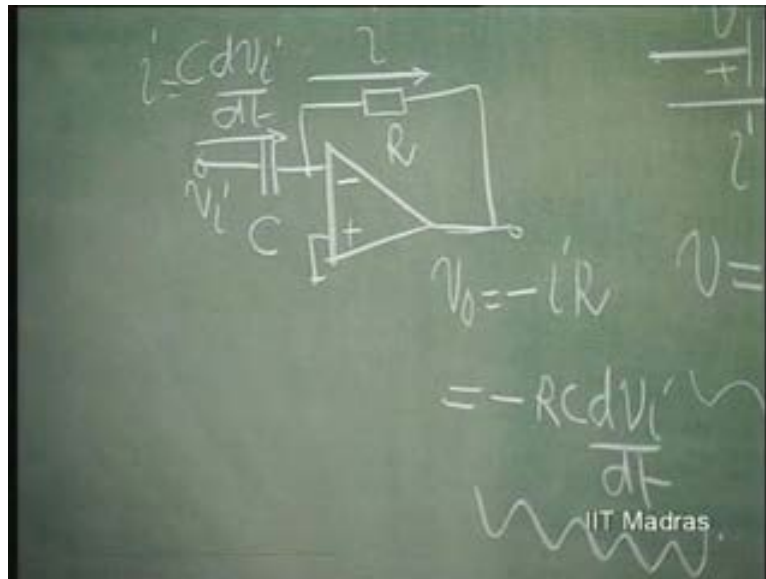 i = C dvi/dt
i
R
vi
C
-
+
v0 = -iR
= -RC dvi/dt
+
i
v =
IIT Madras